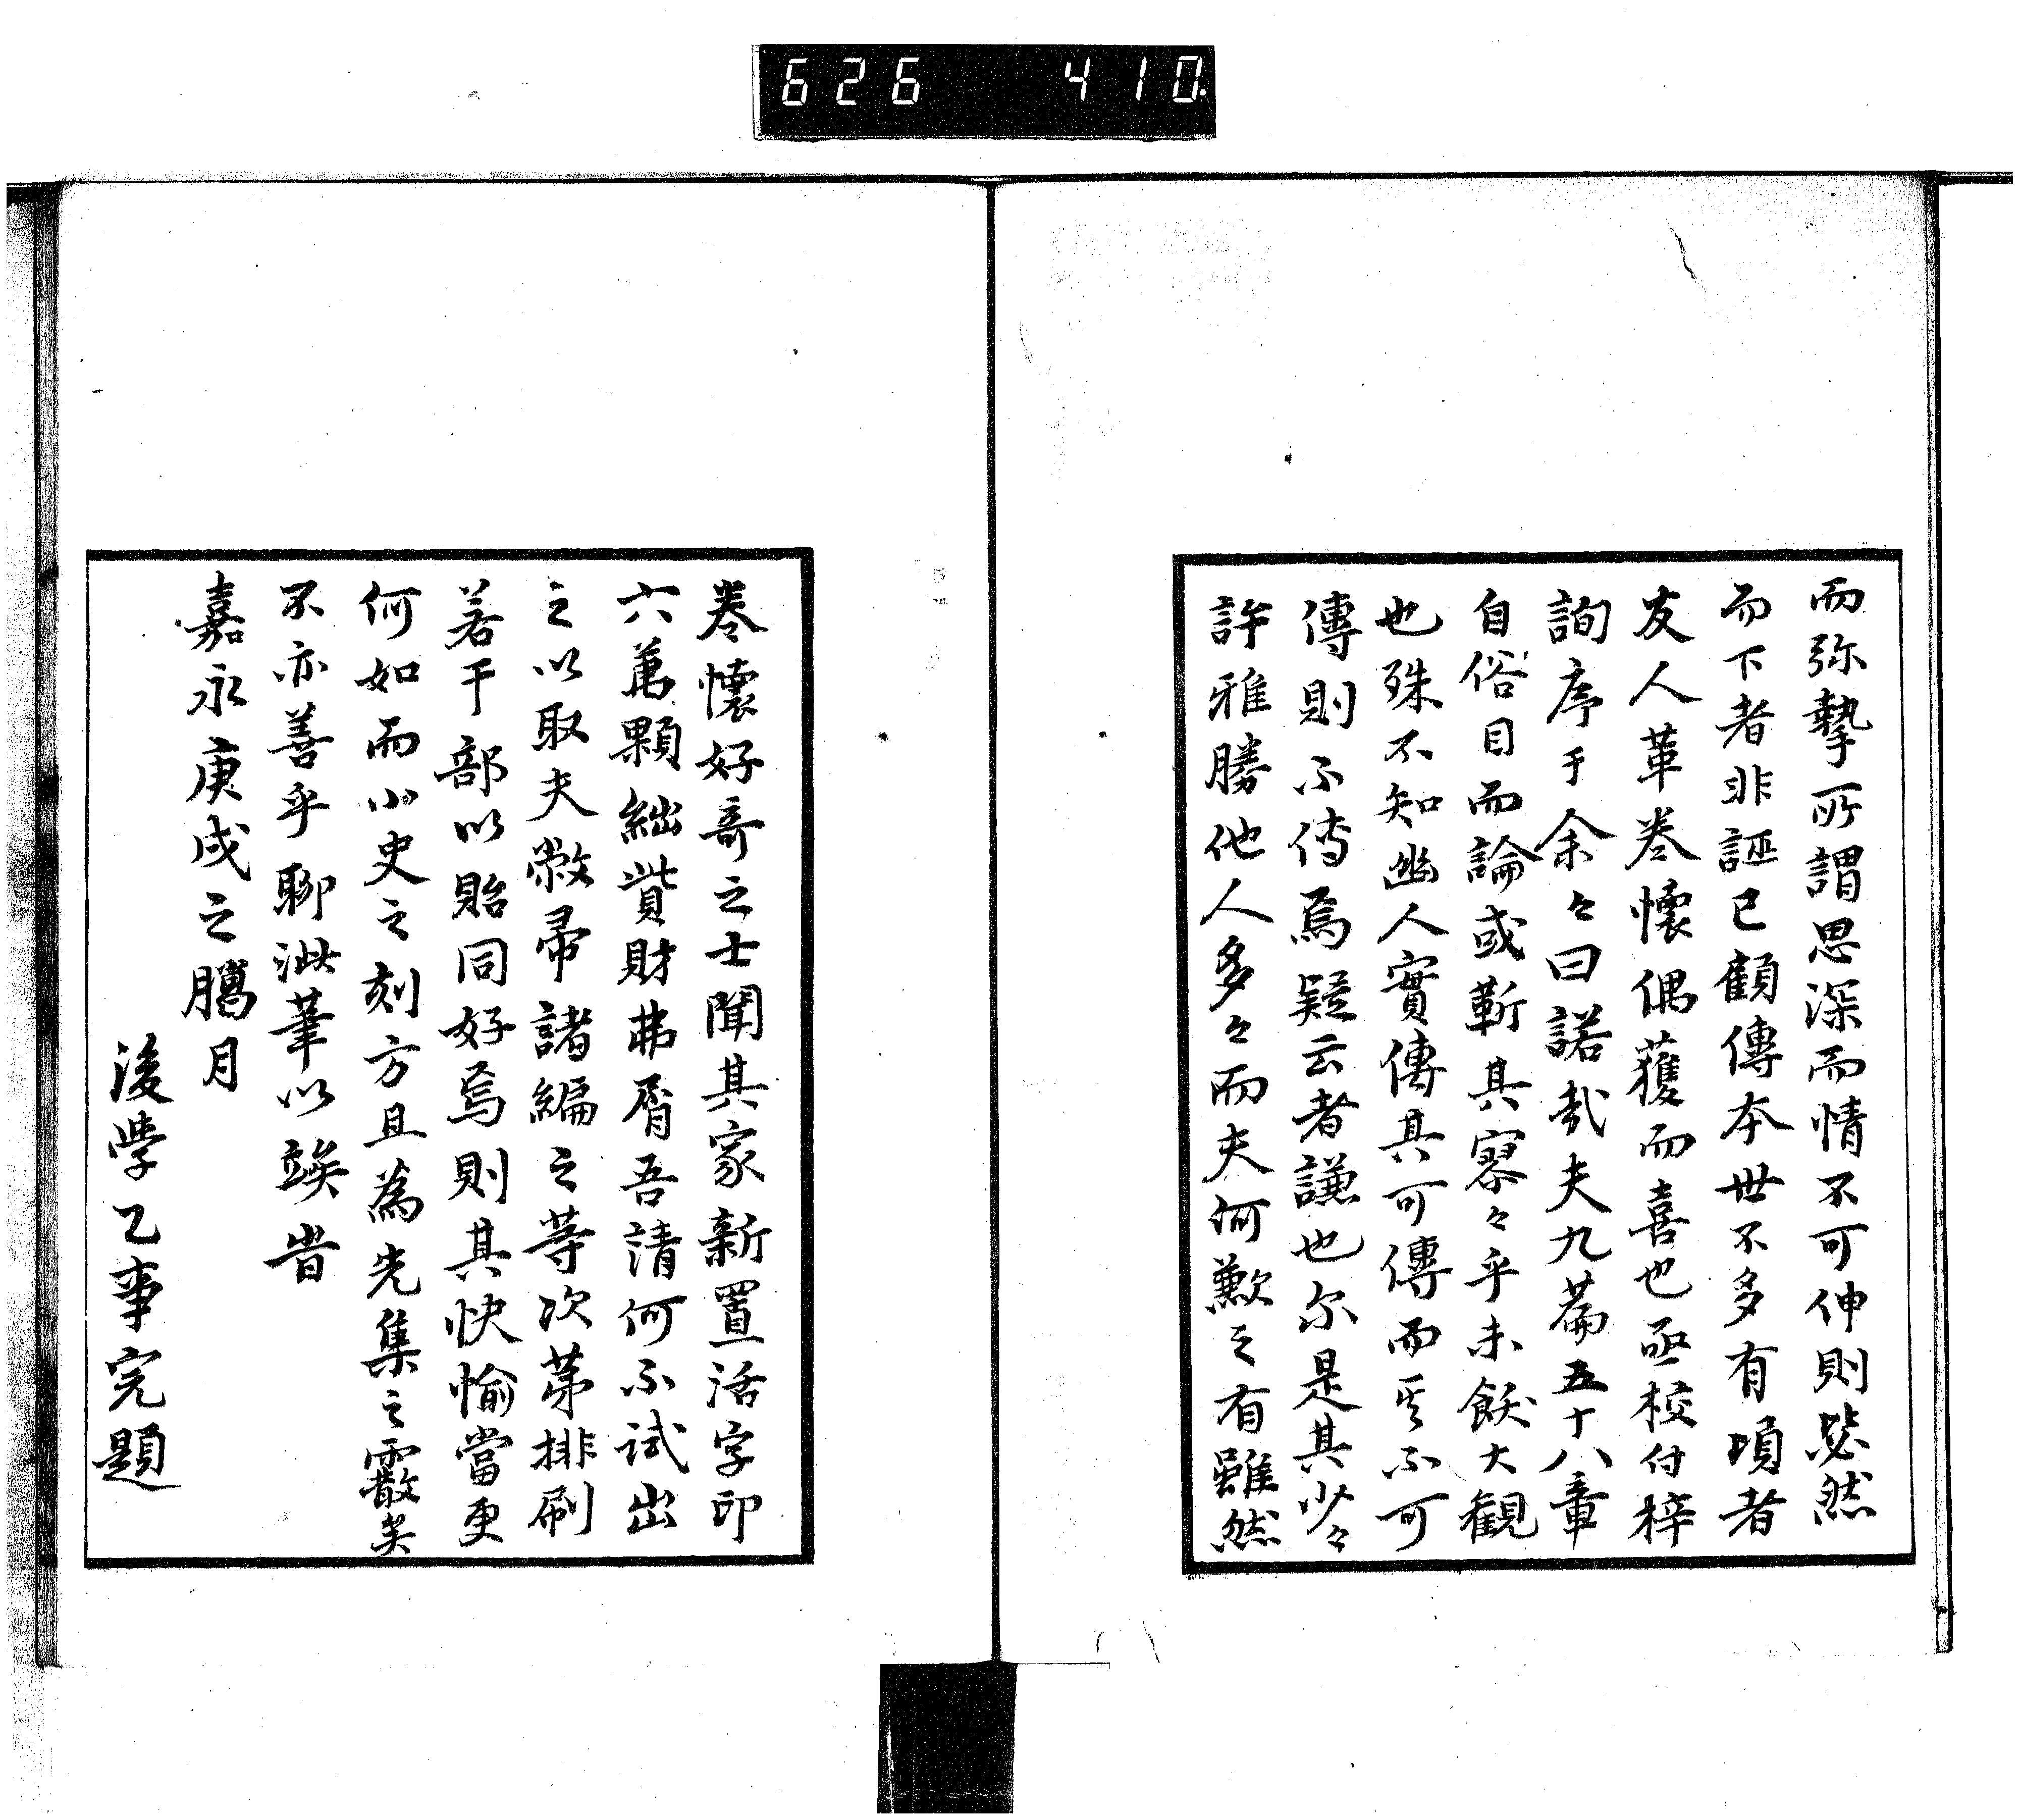 626 410.
而弥摯所謂思深而情不可伸則㫮然
而下者非誣已顧傳本世不多有頃者
友人革卷懐偶獲而喜也亟校付梓
詢序于余々曰諾哉夫九萹五十八章
自俗目而論或靳其寥々乎未飫大觀
也殊不知幽人實傳其可傳而其不可
傳則不傳焉疑云者謙也尓是其少々
許雅勝他人多々而夫何歉之有雖然
卷懐好奇之士聞其家新置活字印
六萬顆絀貲財弗屑吾請何不試出
之以取夫敝帚諸編之等次苐排刷
若干部以貽同好焉則其快愉當更
何如而小史之刻方且為先集之霰矣
不亦善乎聊泚筆以竢旹
嘉永庚戌之臈月
後学乙事完題